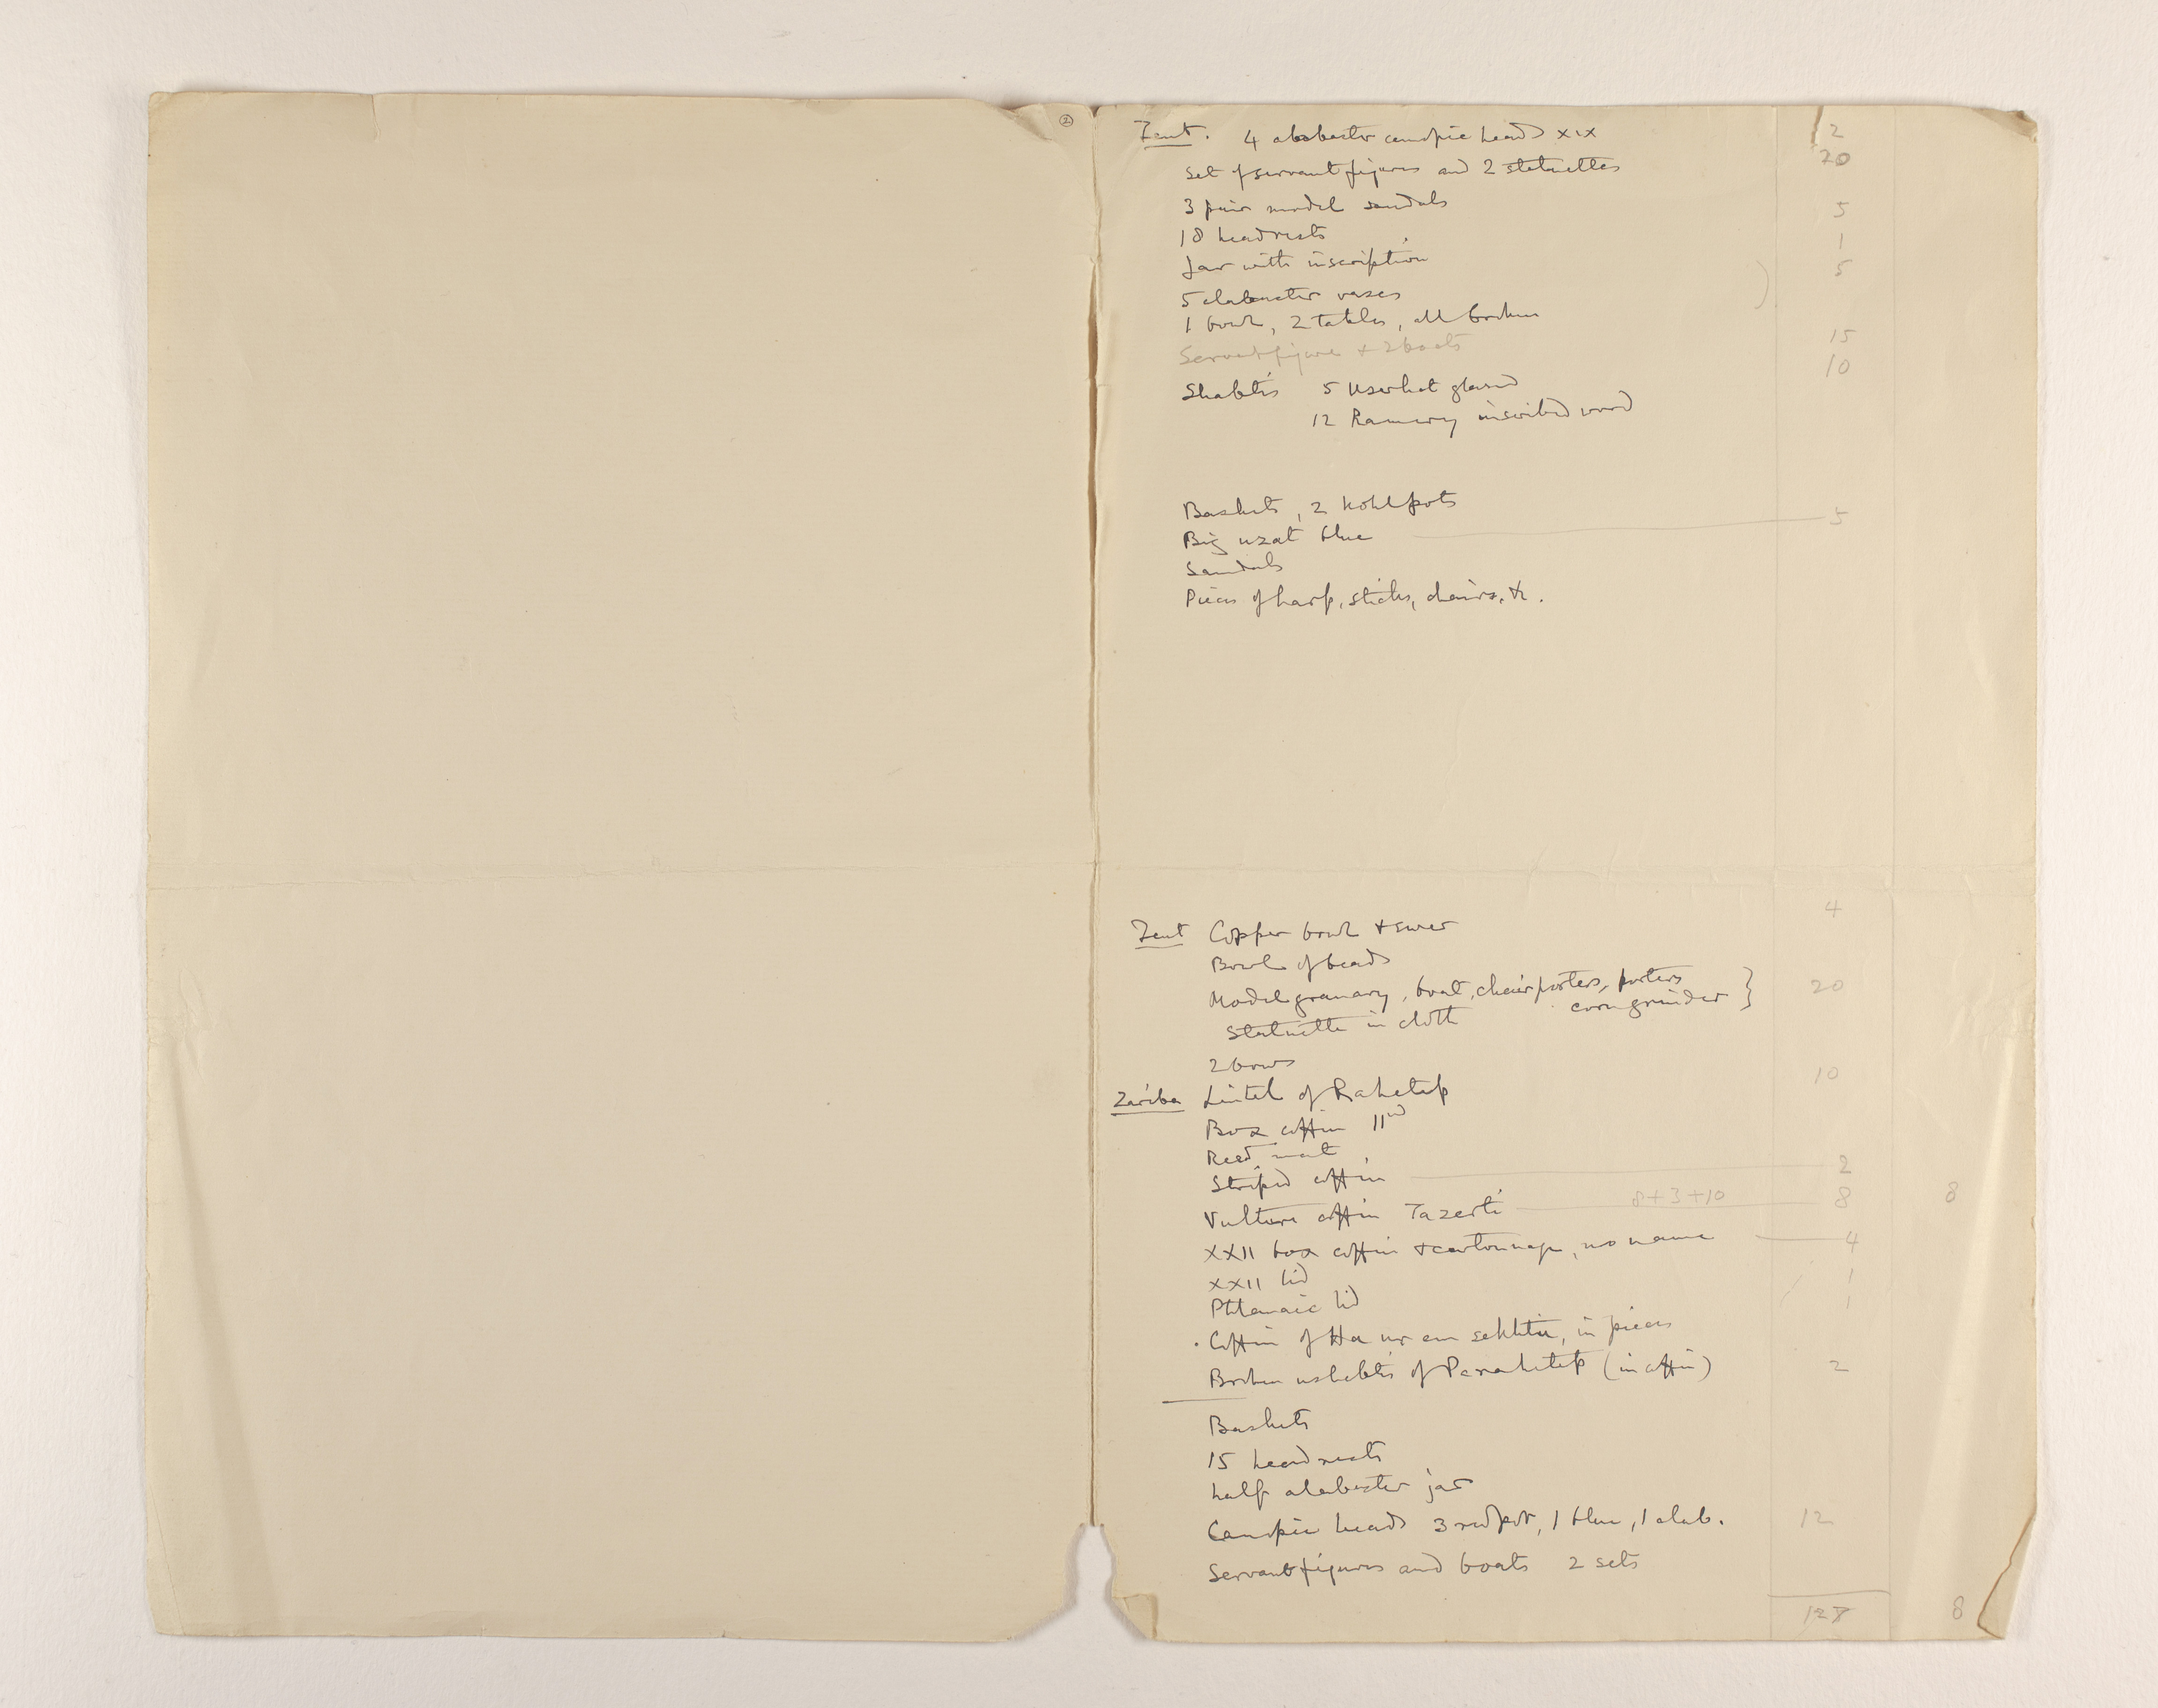 ②
Tent. 4 alabaster canopic heads XIX 2
Set of servant figures and 2 statuettes 20
3 pair model sandals 5
18 headrests 1
Jar with inscription 5
5 alabaster vases
1 bowl, 2 tables, all broken 15
Servant figures + 2 boats 10
Shabtis 5 Userhat glazed
12 Ramery inscribed wood
Baskets, 2 kohlpots
Big uzat blue 5
Sandals
Pieces of harp, sticks, chairs, &c.
4
Tent Copper bowl + ewer
Bowl of beads
Model granary, boat, chair porters, porters } 20
corn grinder
Statuette in cloth
2 bows
Zariba Lintel of Rahetep 10
Box coffin 11nd
Reed mat
Striped coffin 2
Vulture coffin Tazerti 8+3+10 8 8
XXII box coffin + cartonnage, no name 4
XXII lid 1
Ptlemaic lid 1
Coffin of Ha ur em sekhtiu, in pieces
Broken ushabtis of Parahetep (in coffin) 2
Baskets
15 headrests
half alabaster jar
Canopic heads 3 red pot, 1 blue, 1 alab. 12
Servant figures and boats 2 sets
128 8